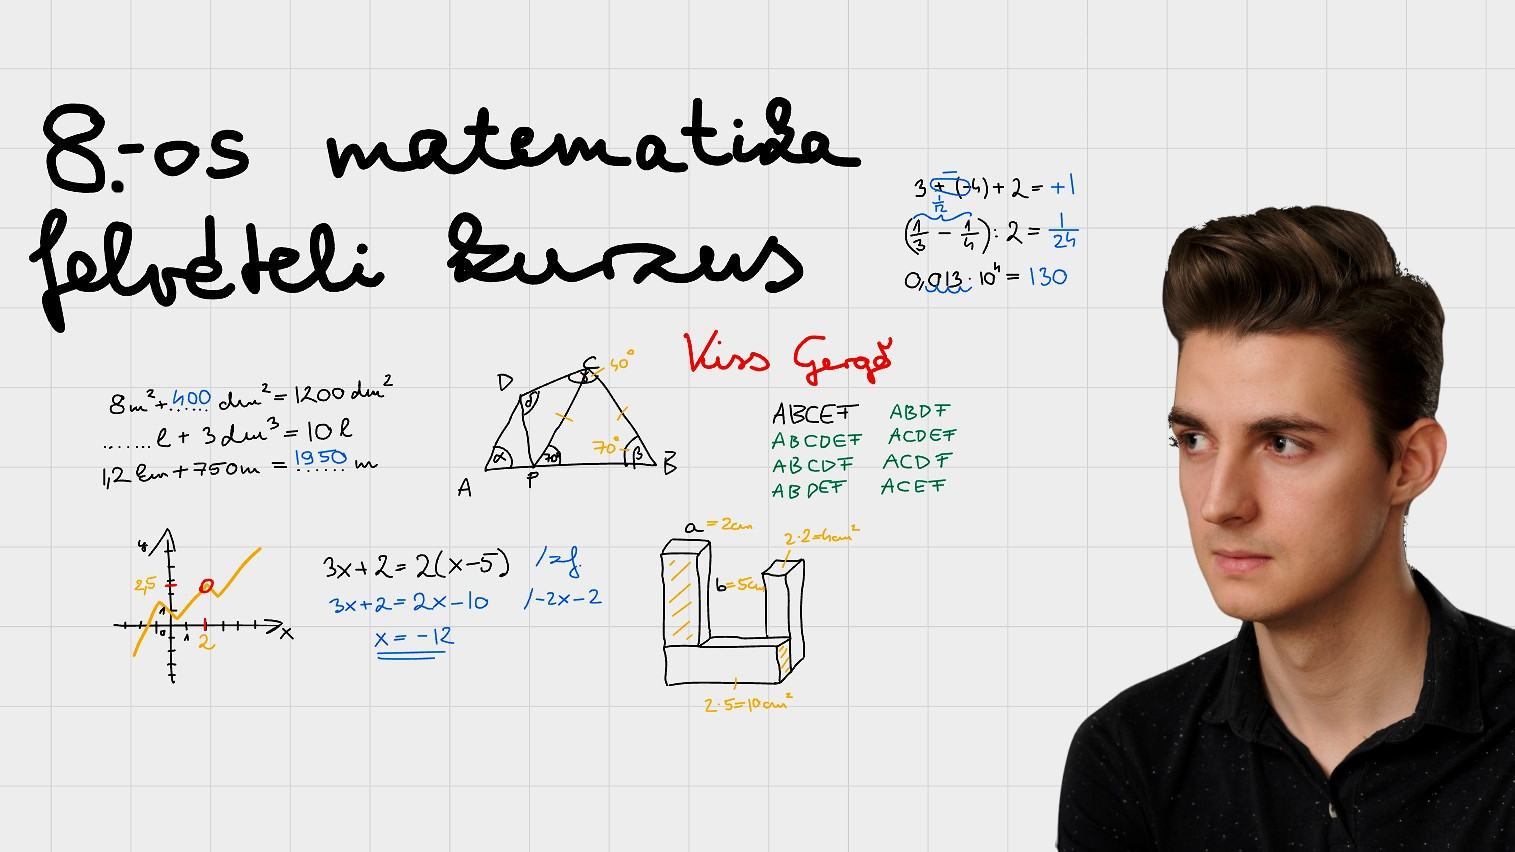 8.-os matematika
felvételi kurzus
3 + (-4) + 2 = +1
1/12
(1/3 - 1/4) : 2 = 1/24
0,013 · 10⁴ = 130
Kiss Gergő
8m² + 400 dm² = 1200 dm²
....... l + 3 dm³ = 10 l
1,2 km + 750 m = 1950 m
D
C
40°
α
δ
γ
70°
70°
β
A
P
B
ABCEF ABDF
ABCDEF ACDEF
ABCDF ACDF
ABDEF ACEF
y
2,5
1
0
1
2
x
3x + 2 = 2(x - 5) /zf.
3x + 2 = 2x - 10 /-2x - 2
x = -12
a = 2cm
2·2=4cm²
b = 5cm
2·5=10cm²